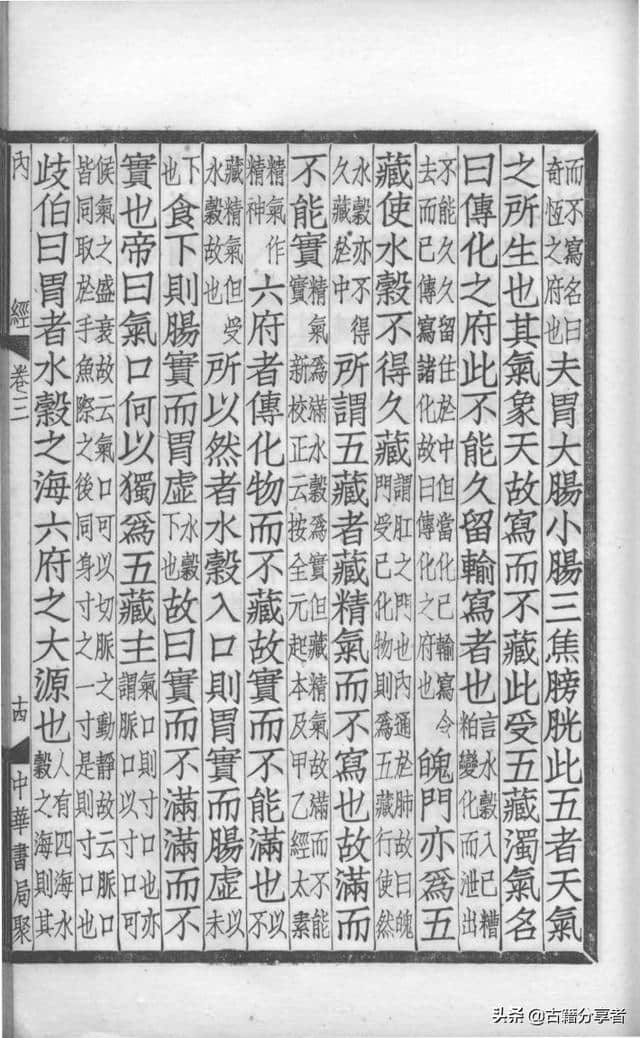 而不寫名曰奇恆之府也夫胃大腸小腸三焦膀胱此五者天氣
之所生也其氣象天故寫而不藏此受五藏濁氣名
曰傳化之府此不能久留輸寫者也言水穀入已糟粕變化而泄出
不能久久留住於中但當化已輸寫令去而已傳寫諸化故曰傳化之府也魄門亦爲五
藏使水穀不得久藏謂肛之門也內通於肺故曰魄門受已化物則爲五藏行使然
水穀亦不得久藏於中所謂五藏者藏精氣而不寫也故滿而
不能實精氣爲滿水穀爲實但藏精氣故滿而不能實 新校正云按全元起本及甲乙經太素
精氣作精神六府者傳化物而不藏故實而不能滿也以不
藏精氣但受水穀故也所以然者水穀入口則胃實而腸虛以未
下也食下則腸實而胃虛水穀下也故曰實而不滿滿而不
實也帝曰氣口何以獨爲五藏主氣口則寸口也亦謂脈口以寸口可
候氣之盛衰故云氣口可以切脈之動靜故云脈口皆同取於手魚際之後同身寸之一寸是則寸口也
歧伯曰胃者水穀之海六府之大源也人有四海水穀之海則其
內經 卷三 十四 中華書局聚
头条 @古籍分享者